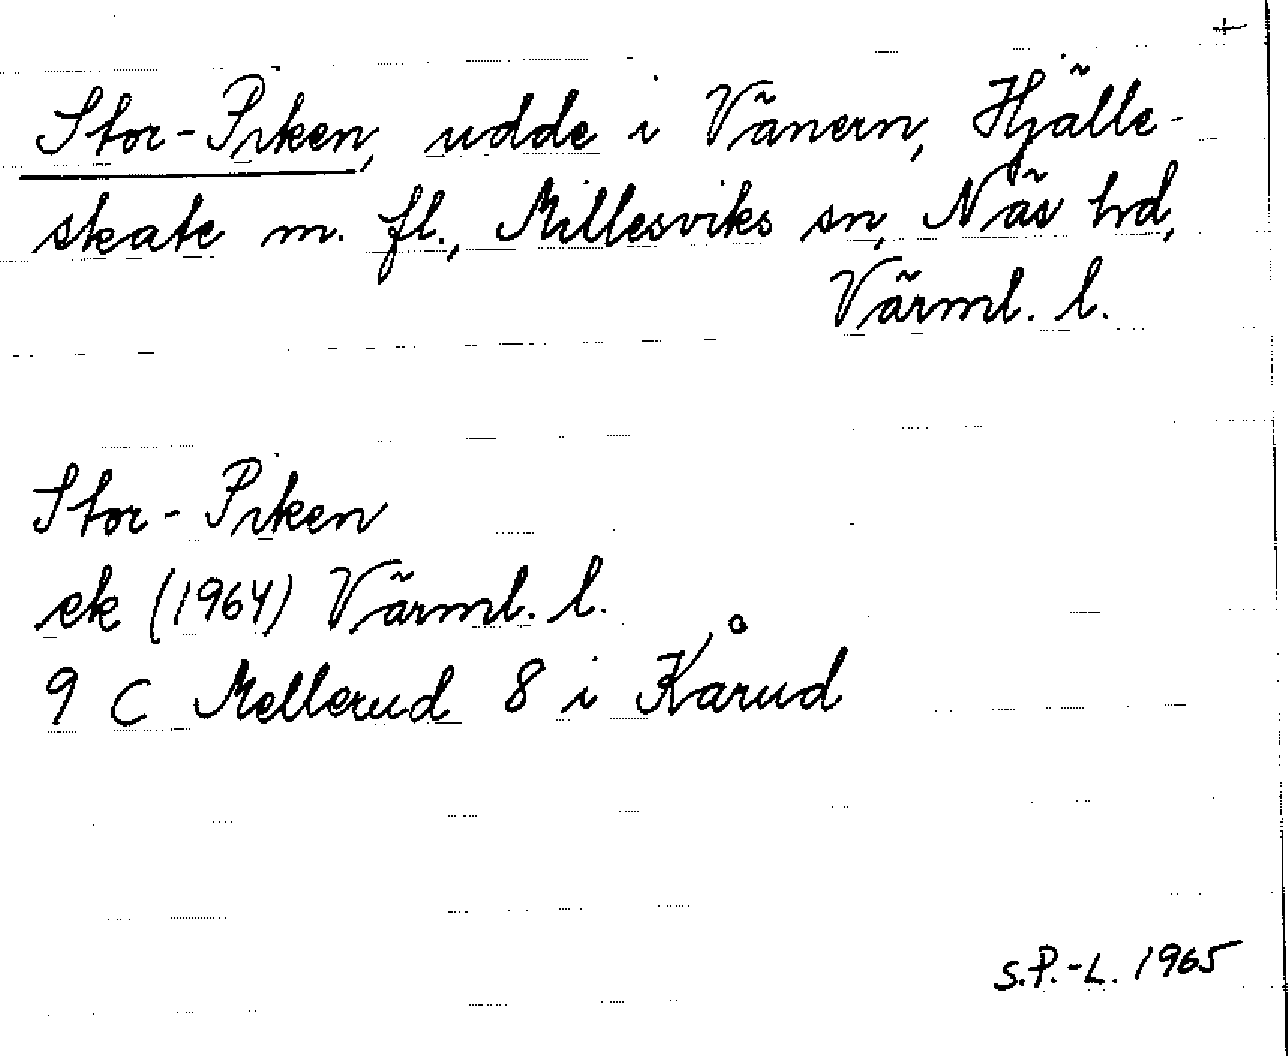 +
Stor-Piken, udde i Vänern, Hjälle-
skate m. fl., Millesviks sn, Näs hd,
Värml. l.
Stor-Piken
ek (1964) Värml. l.
9 C Mellerud 8 i Kårud
S.P.-L. 1965